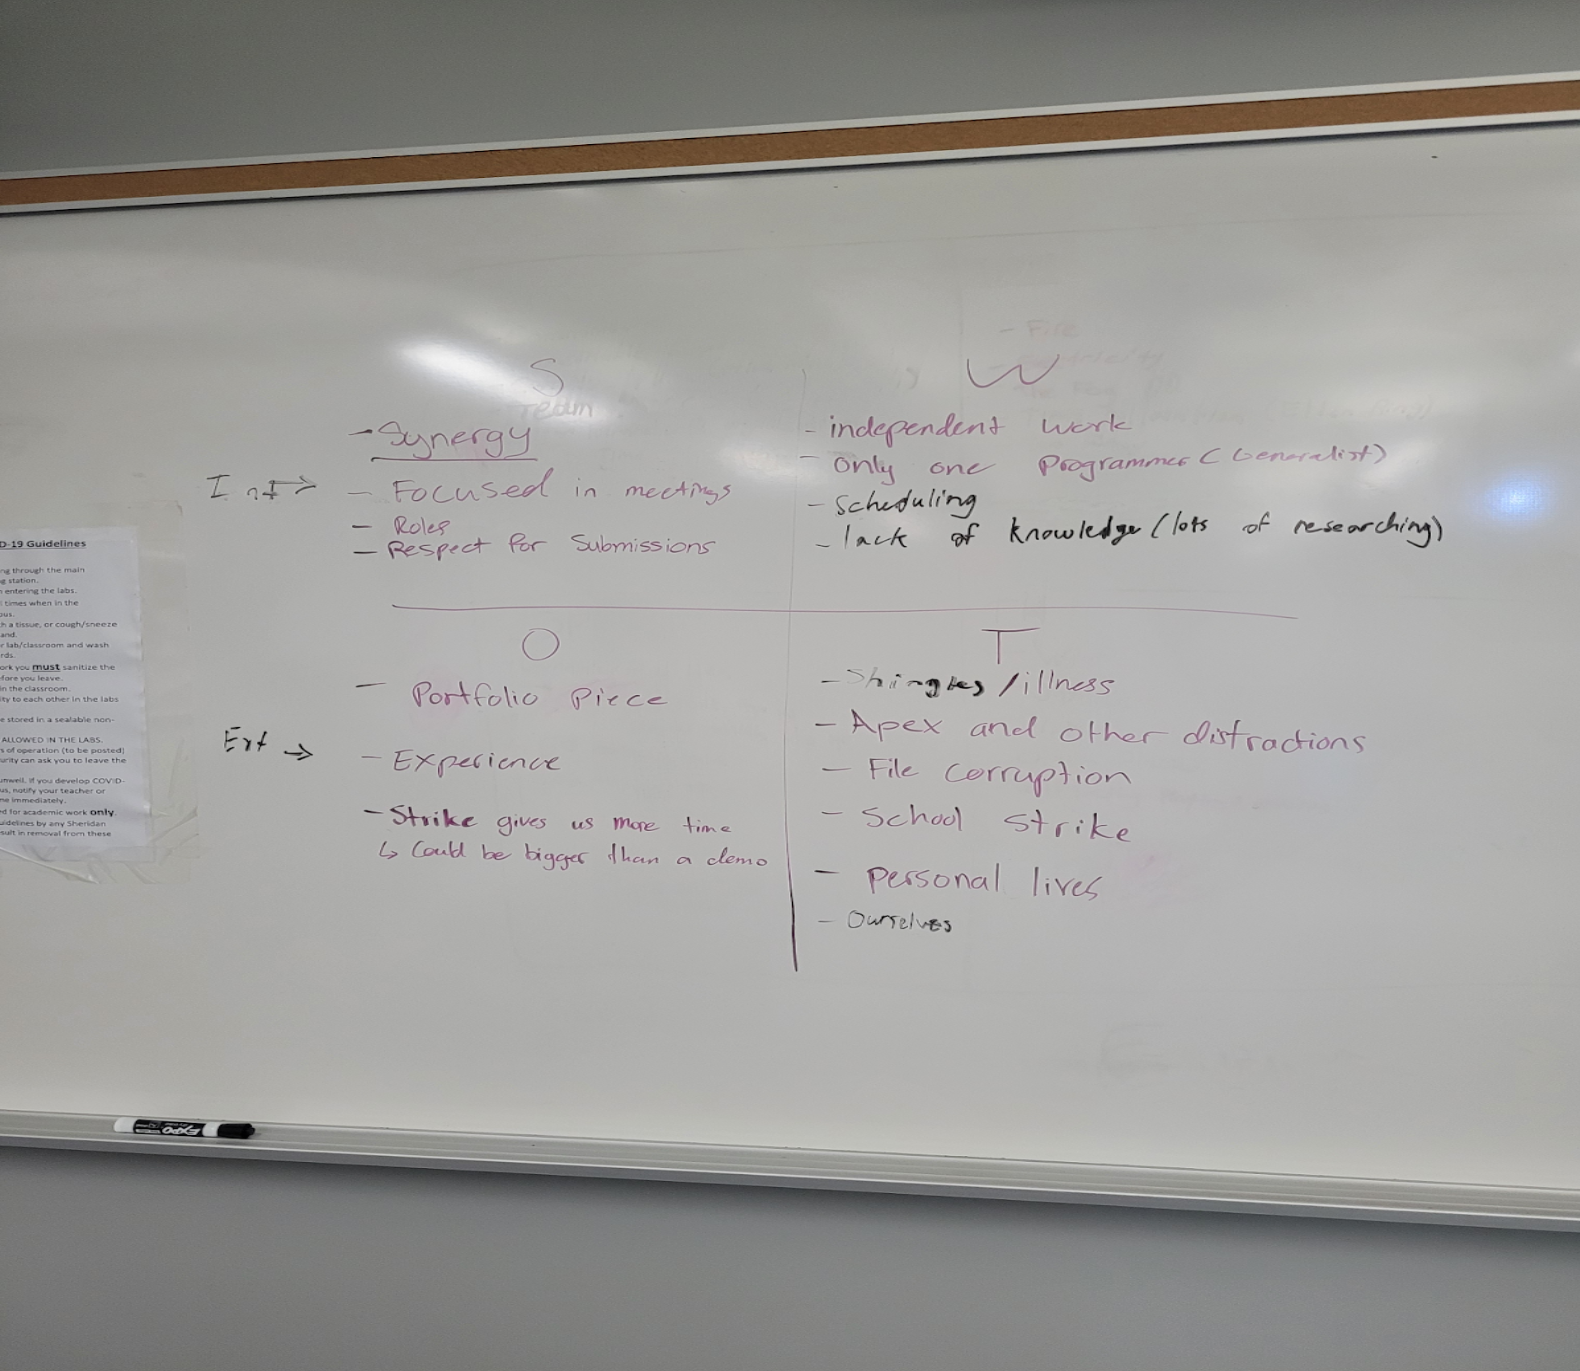 S
Team
- Synergy
Int →
- Focused in meetings
- Roles
- Respect for Submissions
W
- independent work
- only one Programmer (Generalist)
- Scheduling
- lack of knowledge (lots of researching)
O
- Portfolio Piece
Ext →
- Experience
- Strike gives us more time
↳ Could be bigger than a demo
T
- Shingles / illness
- Apex and other distractions
- File corruption
- School Strike
- Personal lives
- Ourselves
- Fire
D-19 Guidelines
ng through the main
g station.
entering the labs.
times when in the
ous.
h a tissue, or cough/sneeze
and.
r lab/classroom and wash
rds.
ork you must sanitize the
fore you leave.
in the classroom.
ity to each other in the labs
e stored in a sealable non-
ALLOWED IN THE LABS.
s of operation (to be posted)
urity can ask you to leave the
unwell. If you develop COVID-
us, notify your teacher or
ne immediately.
ed for academic work only.
uidelines by any Sheridan
sult in removal from these
EXPO